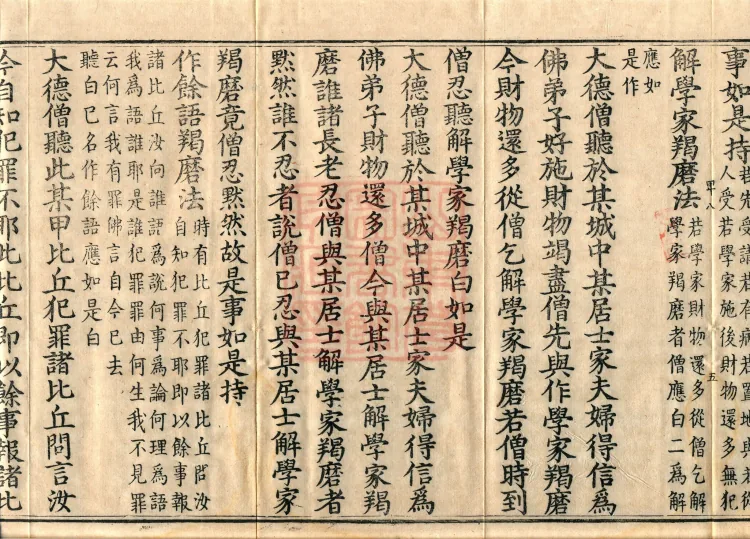 事如是持若先受請若有病若置地與若從
人受若學家施後財物還多無犯
解學家羯磨法若學家財物還多從僧乞解
學家羯磨者僧應白二為解
應如
是作
大德僧聽於某城中某居士家夫婦得信為
佛弟子好施財物竭盡僧先與作學家羯磨
今財物還多從僧乞解學家羯磨若僧時到
僧忍聽解學家羯磨白如是
大德僧聽於某城中某居士家夫婦得信為
佛弟子財物還多僧今與某居士解學家羯
磨誰諸長老忍僧與某居士解學家羯磨者
黙然誰不忍者說僧已忍與某居士解學家
羯磨竟僧忍黙然故是事如是持
作餘語羯磨法時有比丘犯罪諸比丘問汝
自知犯罪不耶即以餘事報
諸比丘汝向誰語為說何事為論何理為語
我為語誰耶是誰犯罪罪由何生我不見罪
云何言我有罪佛言自今已去
聽白已名作餘語應如是白
大德僧聽此某甲比丘犯罪諸比丘問言汝
今自知犯罪不耶此比丘即以餘事報諸比